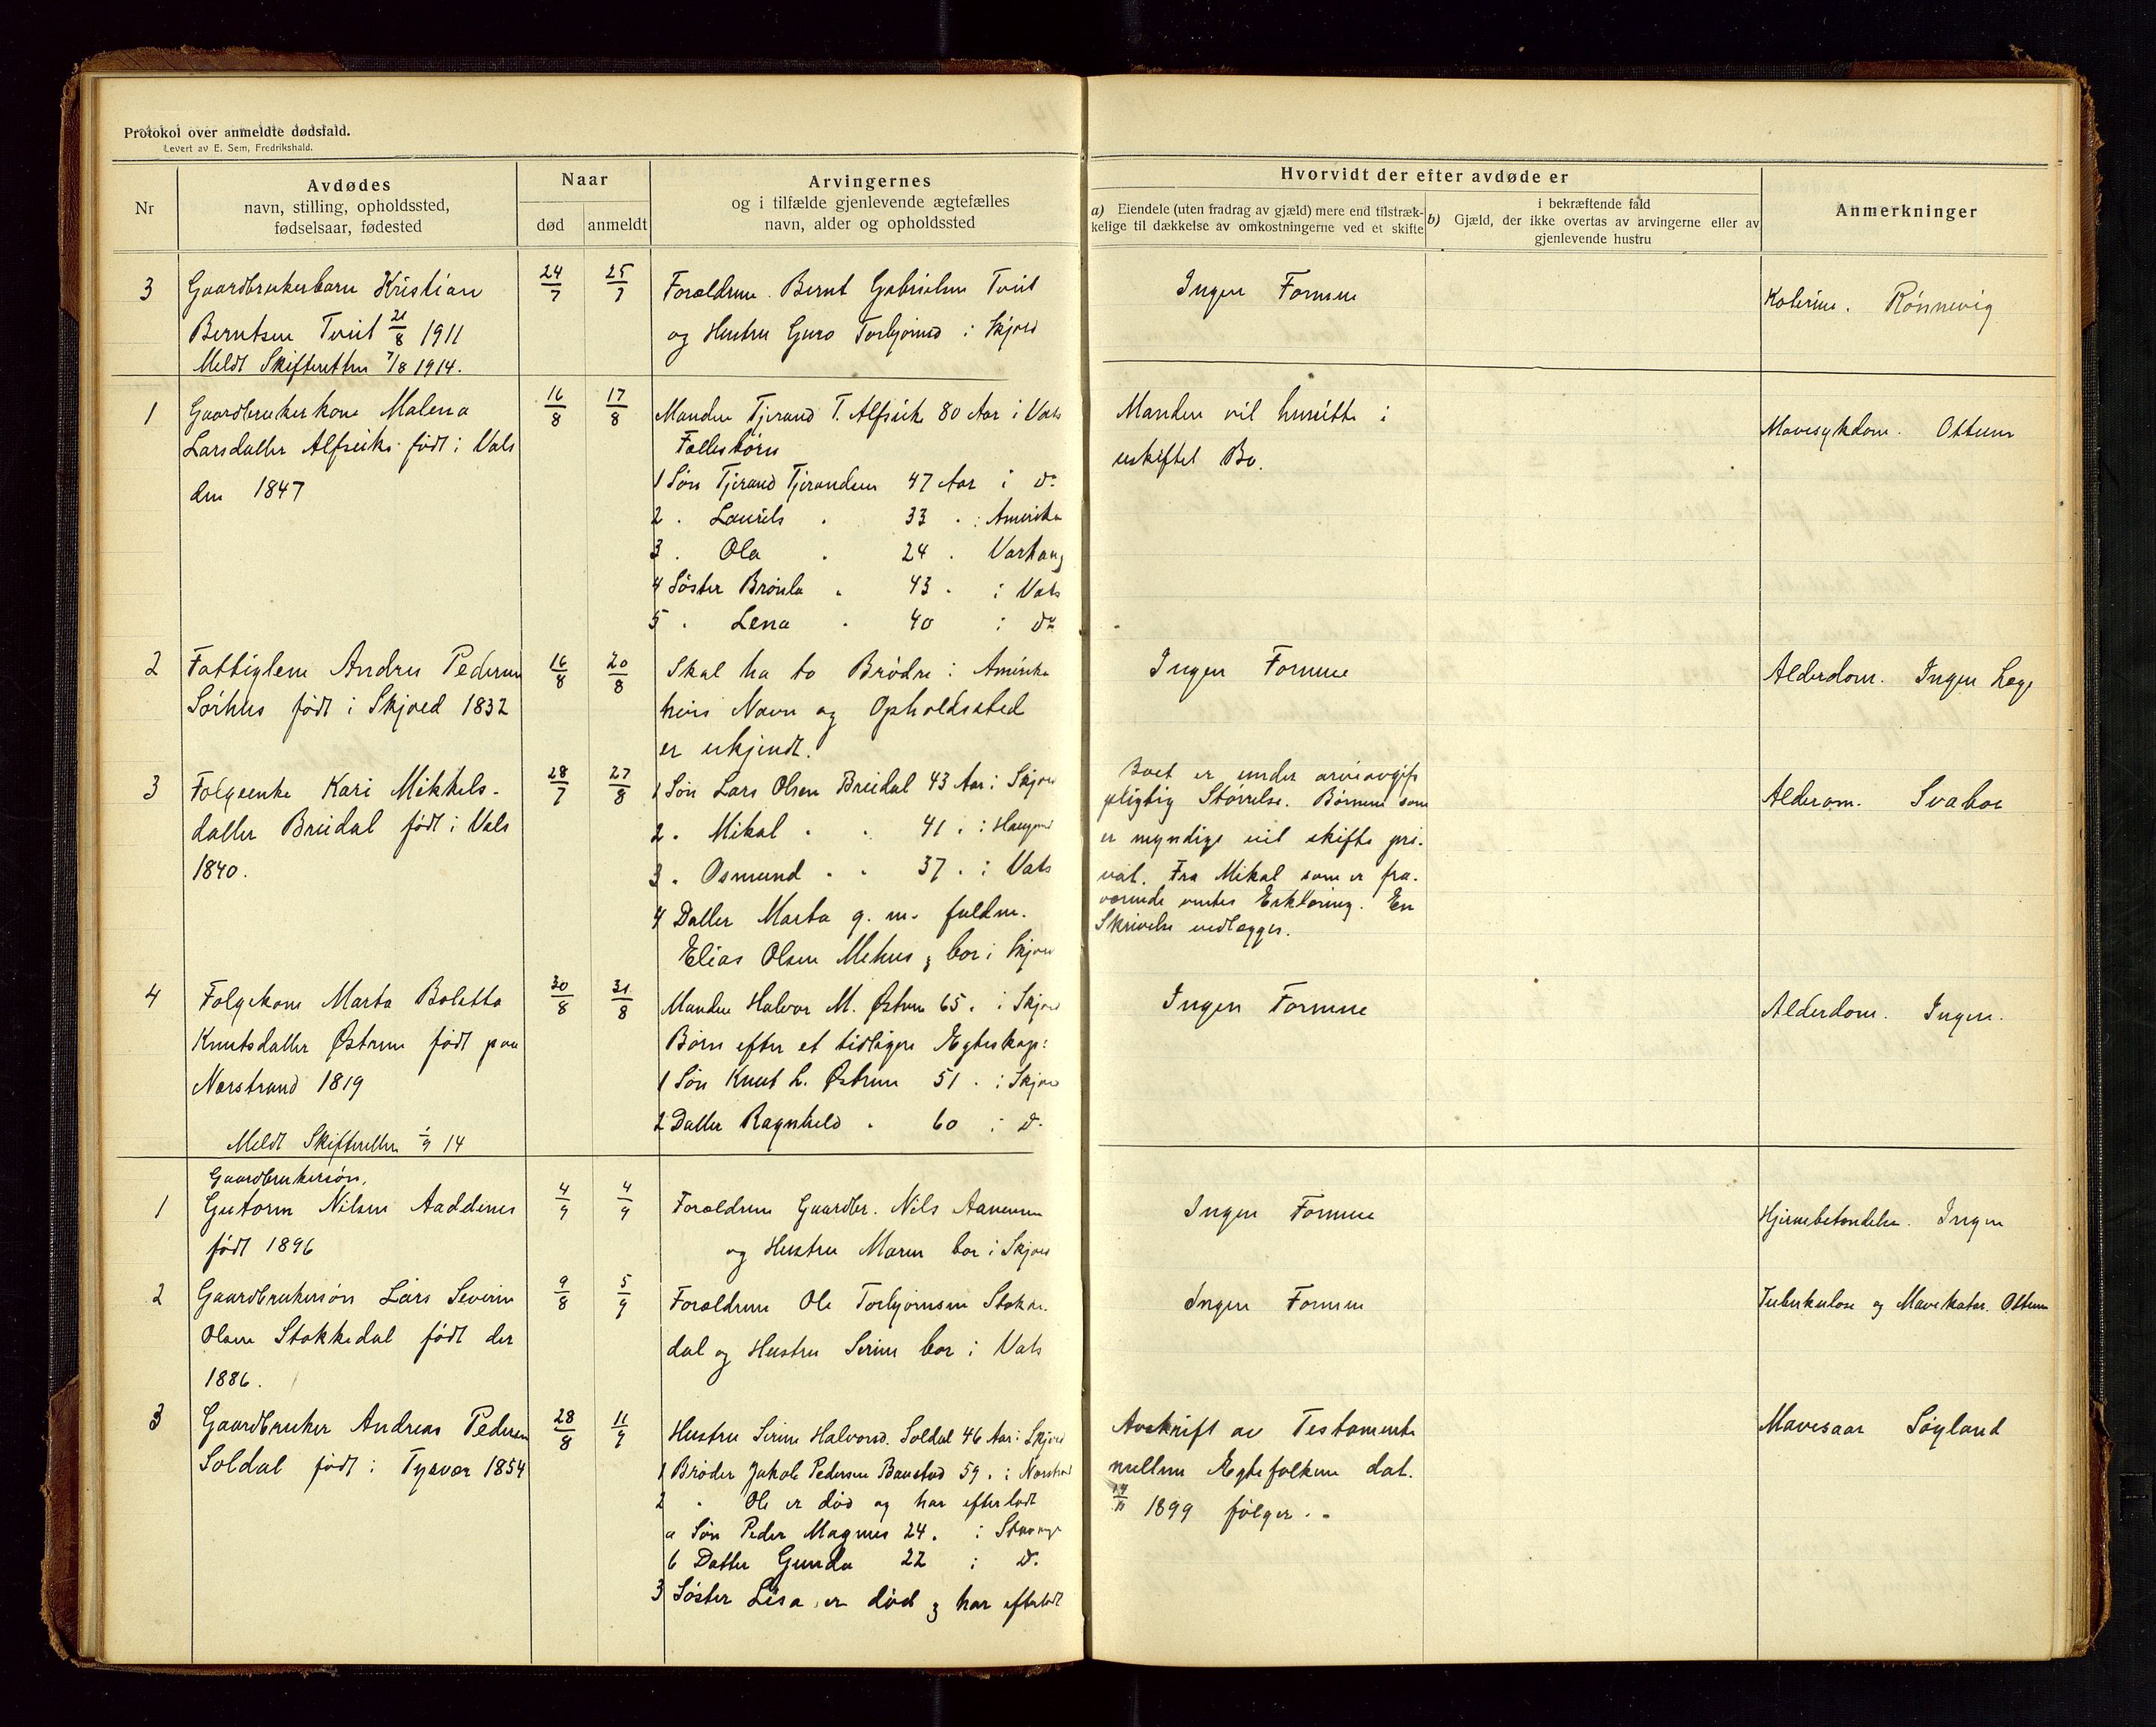 Protokol over anmeldte dødsfald.
Levert av E. Sem, Fredrikshald.
Nr
Avdødes
navn, stilling, opholdssted,
fødselsaar, fødested
Naar
død
anmeldt
Arvingernes
og i tilfælde gjenlevende ægtefælles
navn, alder og opholdssted
Hvorvidt der efter avdøde er
a) Eiendele (uten fradrag av gjæld) mere end tilstræk-
kelige til dækkelse av omkostningerne ved et skifte
i bekræftende fald
b) Gjæld, der ikke overtas av arvingerne eller av
gjenlevende hustru
Anmerkninger
3
Gaardbrukerbarn Kristian
Berntsen Tveit 21/8 1911
Meldt Skifteretten 7/8 1914.
24/7
25/7
Forældrene Bernt Gabrielsen Tveit
og Hustru Guro Torbjørnsd i Skjold
Ingen Formue
Rønnevig
1
Gaardbrukerkone Malena
Larsdatter Alfseike født i Vats
den 1847
16/8
17/8
Manden Tjerand T. Alfseike 80 Aar i Vats
Fællesbørn
1 Søn Tjerand Tjerandsen 47 Aar i do
2 " Laurits " 33 " i Amerika
3 " Ola " 24 " Varhaug
4 Søster Brønla " 43 " i Vats
5 " Lena " 40 i do
Manden vil hensitte i
uskiftet Bo.
Mavesykdom. Ottesen
2
Fattiglem Andrea Pedersen
Sørhus født i Skjold 1832
16/8
20/8
Skal ha to Brødre i Amerika
hvis Navn og Opholdssted
er ukjendt.
Ingen Formue
Alderdom. Ingen Læge
3
Folgeenke Kari Mikkels-
datter Breidal født i Vats
1840.
28/7
27/8
1 Søn Lars Olsen Breidal 43 Aar i Skjold
2 " Mikal " " 41 " i
3 " Osmund " " 37 " i Vats
4 Datter Marta g. m. fuldm.
Elias Olsen Mehus, bor i Skjold
Boet er under arveavgifts
pligtig Størrelse. Børnene som
er myndige vil skifte pri-
vat. Fra Mikal som er fra-
værende ventes Erklæring. En
Skrivelse vedlægges.
Alderdom. Svaboe
4
Folgekone Marta Boletta
Knutsdatter Østrem født paa
Nærstrand 1819
Meldt Skifteretten 1/9 14
30/8
31/8
Manden Halvor M. Østrem 65 " i Skjold
Børn efter et tidligere Ægteskap:
1 Søn Knut L. Østrem 51 " i Skjold
2 Datter Ragnhild " 60 i do
Ingen Formue
Alderdom. Ingen.
1
Gaardbrukersøn.
Gutorm Nilsen Aaddenes
født 1896
4/9
4/9
Forældrene Gaardbr. Nils
og Hustru Maren bor i Skjold
Ingen Formue
Hjernebetændelse. Ingen
2
Gaardbrukersøn Lars Severin
Olsen Stokkedal født der
1886.
9/8
5/9
Forældrene Ole Torbjørnsen Stokke-
dal og Hustru Serine bor i Vats
Ingen Formue
Tuberkulose og Mavekatar. Ottesen
3
Gaardbruker Andreas Pedersen
Soldal født i Tysvær 1854
28/8
11/9
Hustru Serine Halvorsd. Soldal 46 Aar i Skjold
1 Broder Jakob Pedersen Baustad 59 " i Nærstrand
2 " Ole er død og har efterladt
a Søn Peder Magnus 24 " i Stavanger
b Datter Gunda 22 i do
3 Søster Lisa er død og har efterladt
Avskrift av Testamente
mellem Ægtefolkene dat.
1899 følger. "
Mavesaar Søyland